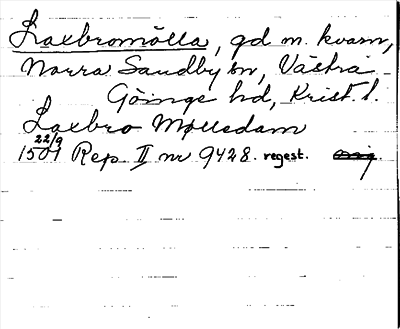 Laxbromölla, gd m. kvarn,
Norra Sandby sn, Västra
Göinge hd, Krist. l.
Laxbro Møllsdam
22/9
1501 Rep. II nr 9428. regest. orig.